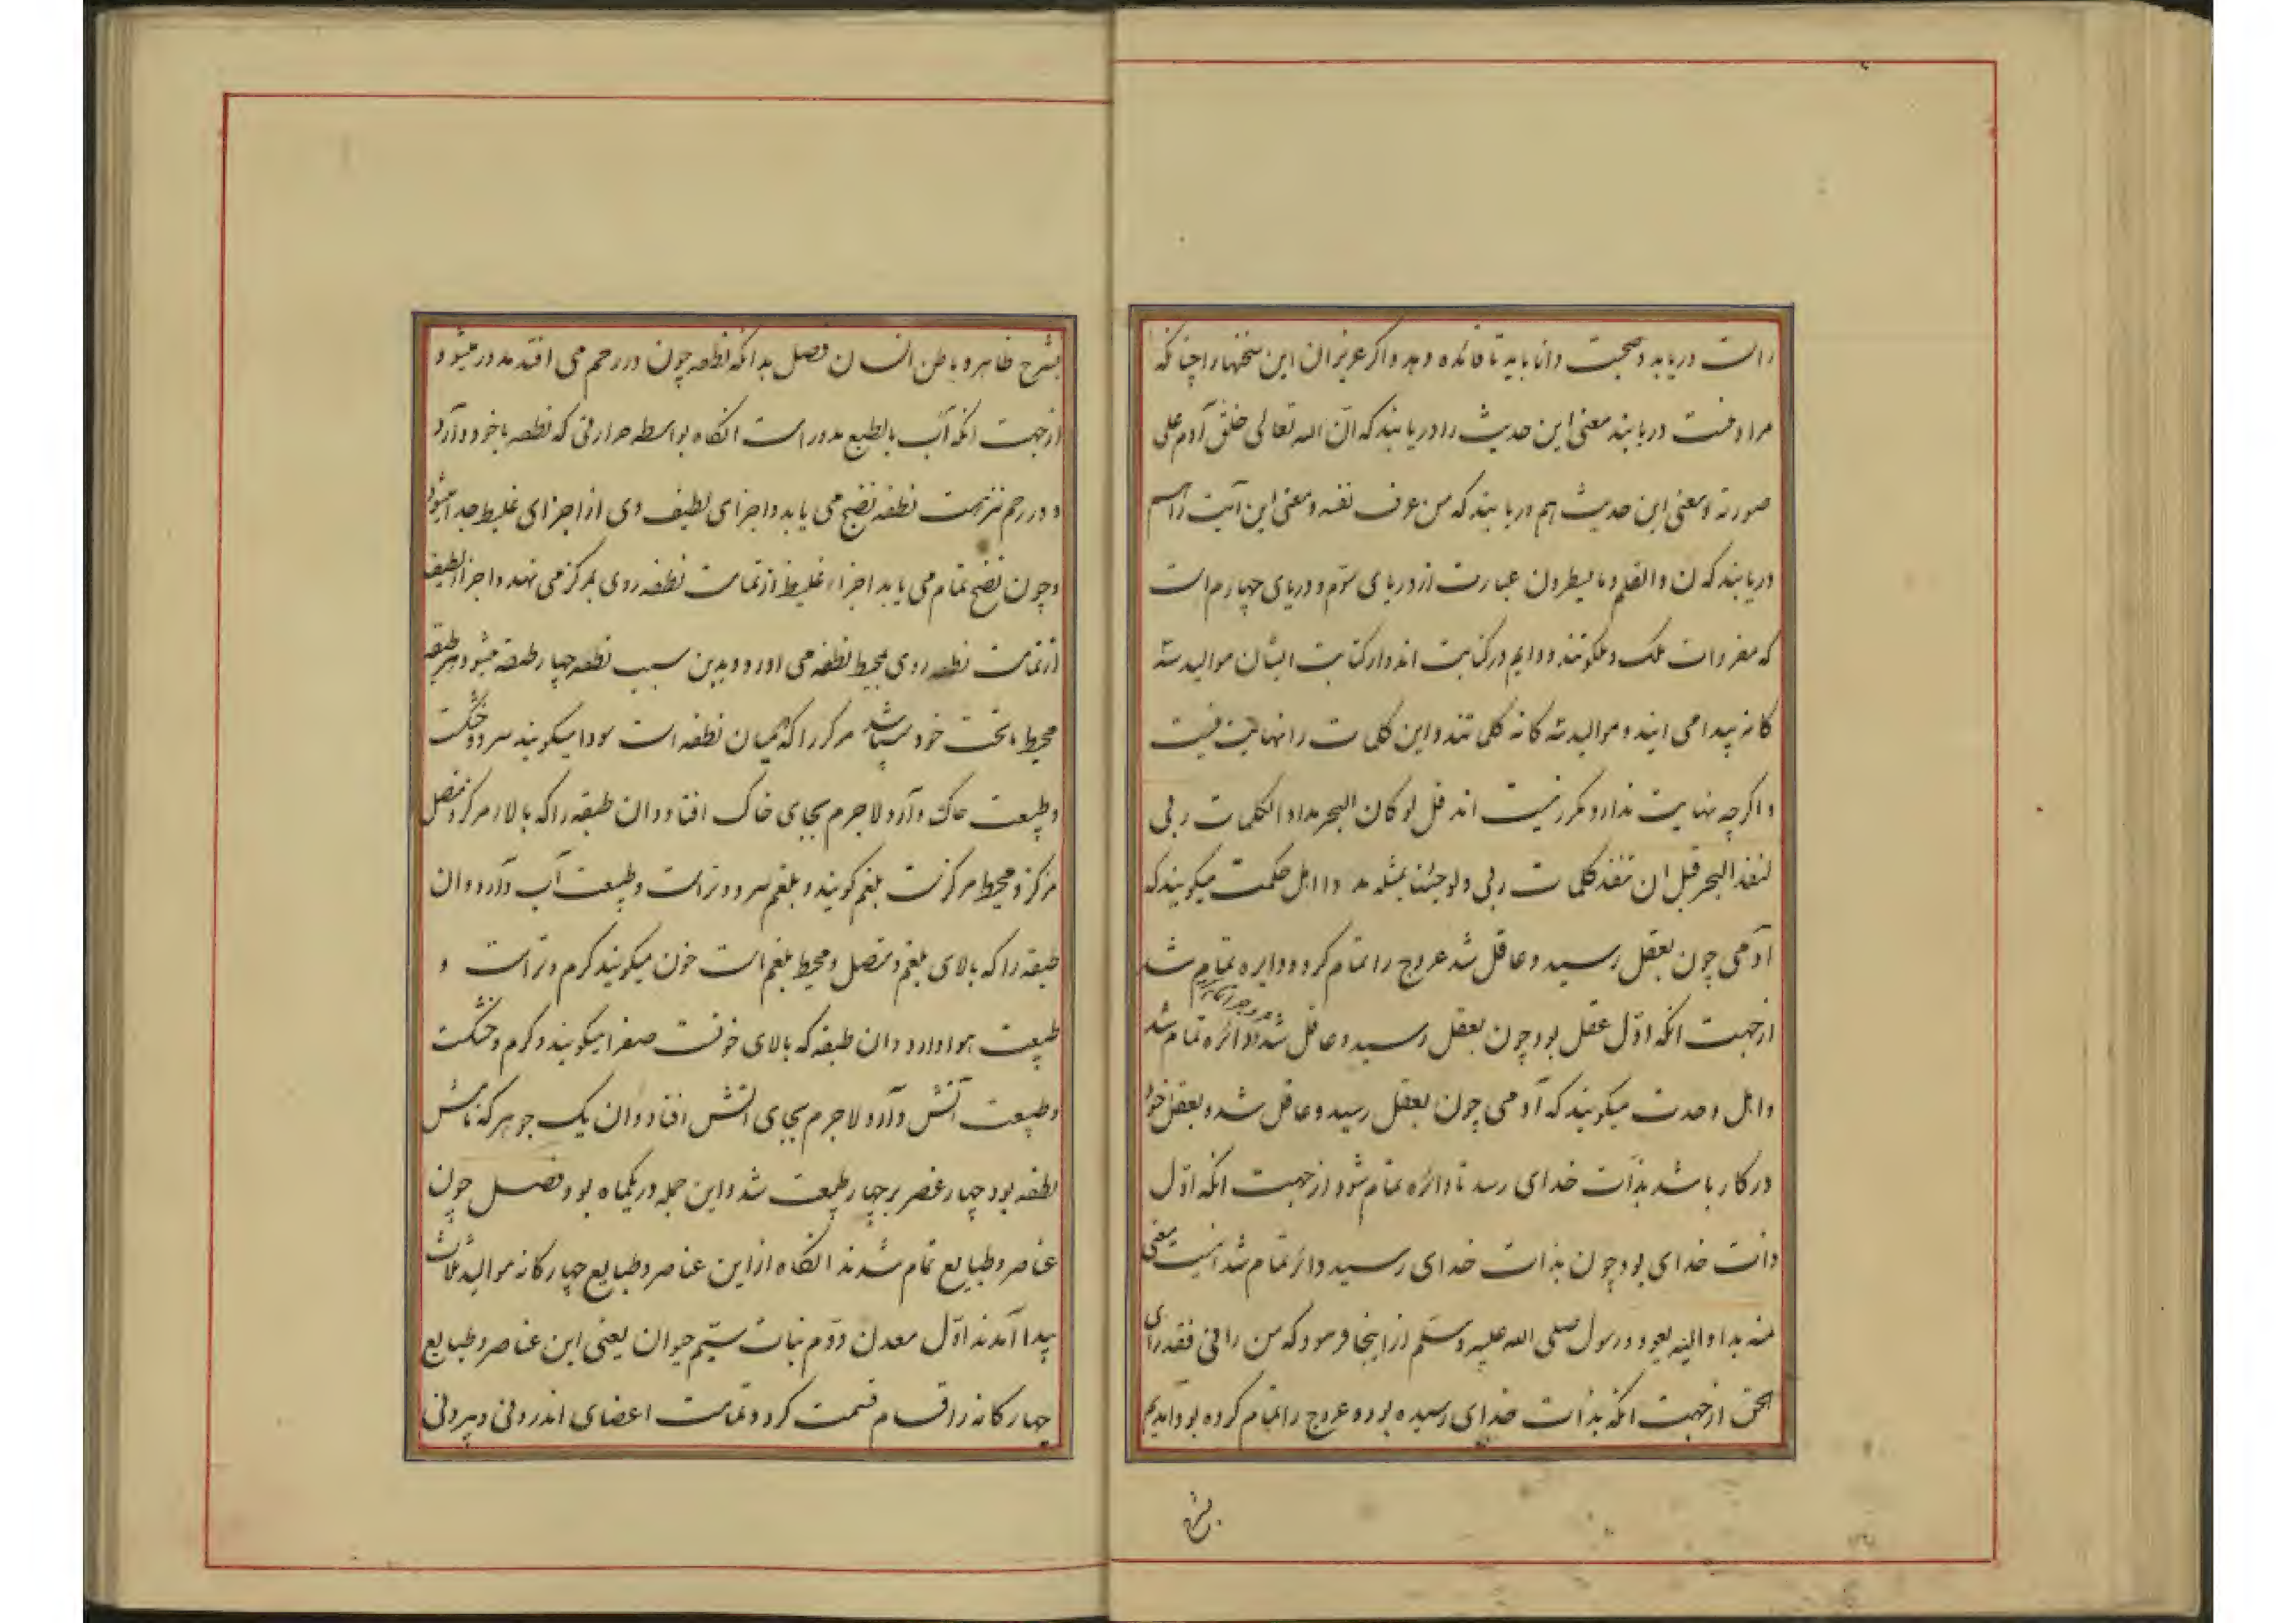 راست دریابد و صحبت دانا باید تا فائده دهد و اگر عزیزان این سخنها را چنانکه
مراد منست دریابند معنی این حدیث را دریابند که ان الله تعالی خلق آدم علی
صورته و معنی این حدیث هم دریابند که من عرف نفسه و معنی این آیت را هم
دریابند که ن والقلم وما یسطرون عبارت از دریای سوم و دریای چهارم است
که مفردات ملک و ملکوتند و دایم در کتابت اند و از کتابت ایشان موالید سه
کانه پیدا می ایند و موالید سه کانه کلماتند و این کلمات را نهایت نیست
و اکرچه نهایت ندارد مکرر نیست اند قل لو کان البحر مدادا لکلمات ربی
لنفد البحر قبل ان تنفد کلمات ربی ولو جئنا بمثله مددا اهل حکمت میکویند که
آدمی چون بعقل رسید و عاقل شد عروج را تمام کرد و دایره تمام شد
ازجهت انکه اول عقل بود چون بعقل رسید و عاقل شد دائره تمام شد
و اهل وحدت میکویند که آدمی چون بعقل رسید و عاقل شد و بعقل خود
در کار باشد بذات خدای رسد تا دائره تمام شود ازجهت انکه اول
ذات خدای بود چون بذات خدای رسید دائره تمام شد اینست معنی
منه بدا والیه یعود و رسول صلی الله علیه وسلم از اینجا فرمود که من رانی فقد رای
الحق ازجهت انکه بذات خدای رسیده بوده عروج را تمام کرده بود آمدیم
بشرح
بشرح ظاهر و باطن انسان فصل بدانکه نطفه چون در رحم می افتد مدور میشود
ازجهت انکه آب بالطبع مدور است انکاه بواسطه حرارتی که نطفه با خود دارد
و در رحم نیز هست نطفه نضج می یابد و اجزای لطیف وی از اجزای غلیظ جدا میشود
و چون نضج تمام می یابد اجزاء غلیظ از تمامت نطفه روی بمرکز می نهد و اجزاء لطیف
از تمامت نطفه روی بمحیط نطفه می اورد و بدین سبب نطفه چهار طبقه میشود هر طبقه
محیط ماتحت خود میباشد مرکز را که میان نطفه است سودا میکویند سرد و خشکست
و طبیعت خاک دارد لاجرم بجای خاک افتاد و ان طبقه را که بالاء مرکز و متصل
مرکز و محیط مرکزست بلغم کویند و بلغم سرد و تر است و طبیعت آب دارد و ان
طبقه را که بالای بلغم و متصل و محیط بلغم است خون میکویند کرم و تر است و
طبیعت هوا دارد و ان طبقه که بالای خونست صفرا میکویند و کرم و خشکست
و طبیعت آتش دارد لاجرم بجای اتش افتاد و ان یک جوهر که نامش
نطفه بود چهار عنصر بر چهار طبیعت شد و این جمله در یکماه بود فصل چون
عناصر و طبایع تمام شدند انکاه از این عناصر و طبایع چهار کانه موالید ثلاث
پیدا آمدند اول معدن دوم نبات سیم حیوان یعنی این عناصر و طبایع
چهارکانه را قسام قسمت کرد و تمامت اعضای اندرونی و بیرونی